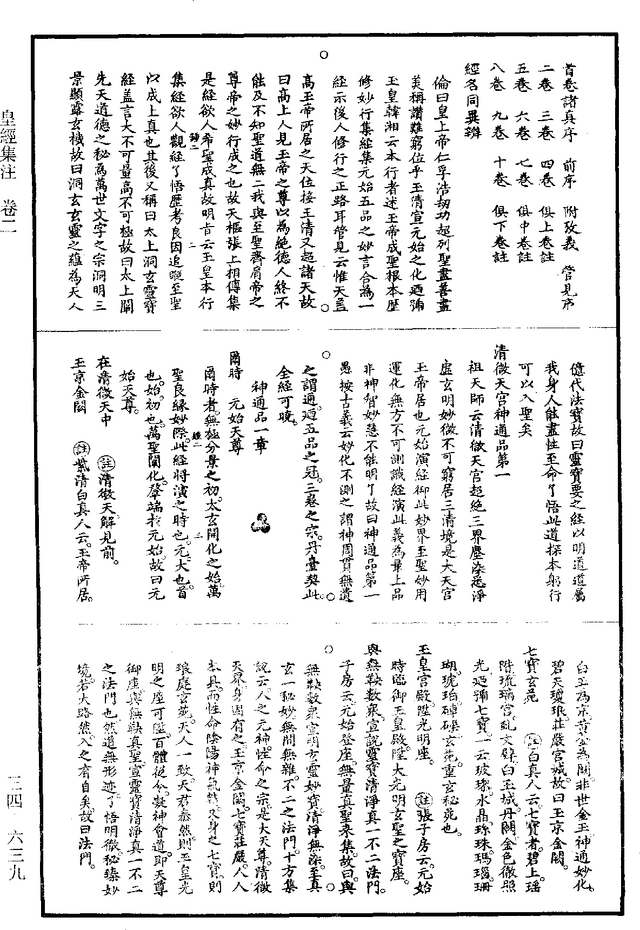 皇經集注 卷二
三四—六三九
首卷諸真序 前序 附攷義 管見序
二卷 三卷 四卷 俱上卷註
五卷 六卷 七卷 俱中卷註
八卷 九卷 十卷 俱下卷註
經名同異辯
倫曰皇上帝仁孚浩劫功超列聖盡善盡
美稱讚難窮位乎玉清宣元始之化廼彌
玉皇韓湘云本行者述玉帝成聖根本歷
修妙行集經集元始五品之妙言合為一
經示後人修行之正路耳管見云惟天蓋
高玉帝所居之天位接玉清又超諸天故
曰高上人見玉帝之尊以為絶德人終不
能及不知聖道無二我與至聖齊肩帝之
尊帝之妙行成之也故天樞張上相傳集
是經欲人希聖成真故明古云玉皇本行
集經欲人觀經了悟歷考良因追蹤至聖
以成上真也其後又稱曰太上洞玄靈寶
經蓋言大不可量高不可極故曰太上闡
先天道德之秘為萬世文字之宗洞明三
景顯露玄機故曰洞玄玄靈之蘊為天人
億代法寶故曰靈寶要之經以明道道屬
我身人能盡性至命了悟此道探本躬行
可以入聖矣
清微天宮神通品第一
祖天師云清微天宮超絶三界塵染悉淨
虛玄明妙微不可窮居三清境是大天宮
玉帝居也元始演經御此妙界至聖妙用
運化無方不可測識經演此義為最上品
非神智妙慧不能明了故曰神通品第一
愚按古義云妙化不測之謂神周貫無遺
之謂通廼五品之冠三卷之宗丹臺契此
全經可曉
神通品一章
爾時 元始天尊
爾時者無極分景之初太玄開化之始萬
聖良緣妙際此經將演之時也元大也首
也始初也萬聖闡化肇端於元始故曰元
始天尊
在清微天中 註清微天解見前
玉京金闕 註紫清白真人云玉帝所居
白玉為京黃金為闕非世金玉神通妙化
碧天瓊琅莊嚴宮城故曰玉京金闕
七寶玄苑 註白真人云七寶者碧上瑶
階琉璃宮虬文縁白玉城丹闕金色微照
光廼彌七寶一云玻璃水晶珎珠瑪瑙珊
瑚琥珀硨磲玄苑重玄秘苑也
玉皇宮殿陞光明座 註張子房云元始
時臨御玉皇殿陞大光明玄聖之寶座
與無鞅數衆宣說靈寶清淨真一不二法門
子房云元始登座無量真聖來集故曰與
無鞅數衆宣明玄靈妙寶清淨無染至真
玄一秘妙無間無雜不二之法門十方集
說云人之元神性命之宗是大天尊清微
天界身固有之玉京金闕七寶莊嚴人人
本具而性命陰陽神氣 又身之七寶則
琅庭玄苑天人一致天君泰然則玉皇光
明之座可陞百體從令凝神會道即天尊
御座與無鞅真聖宣靈寶清淨真一不二
之法門也然道無形迹了悟明微秘臻妙
境若大路然入之有自矣故曰法門